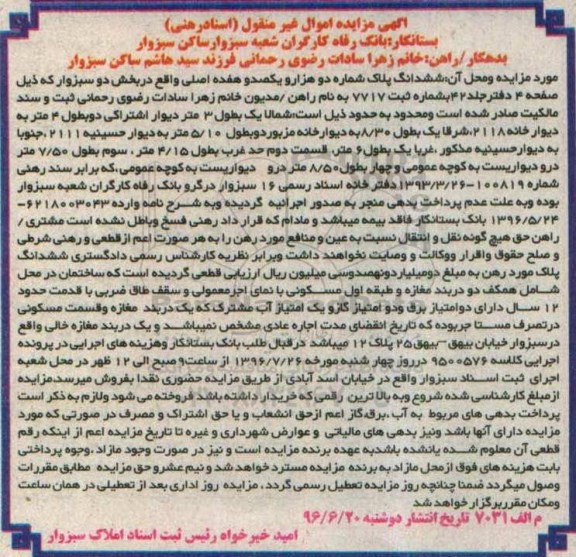 آگهی مزایده اموال غیر منقول (اسنادرهنی)
بستانکار:بانک رفاه کارگران شعبه سبزوارساکن سبزوار
بدهکار/راهن:خانم زهرا سادات رضوی رحمانی فرزند سید هاشم ساکن سبزوار
مورد مزایده ومحل آن:ششدانگ پلاک شماره دو هزارو یکصدو هفده اصلی واقع دربخش دو سبزوار که ذیل
صفحه ۴ دفترجلد۴۲بشماره ثبت ۷۷۱۷ به نام راهن /مدیون خانم زهرا سادات رضوی رحمانی ثبت و سند
مالکیت صادر شده است ومحدود به حدود ذیل است:شمالا یک بطول ۳ متر دیوار اشتراکی دوبطول ۴ متر به
دیوار خانه۲۱۱۸،شرقا یک بطول ۸/۳۰به دیوارخانه مزبوردوبطول ۵/۱۰ متر به دیوار حسینیه۲۱۱۱،جنوبا
به دیوارحسینیه مذکور ،غربا یک بطول۶ متر، قسمت دوم حد غرب بطول ۴/۱۵ متر ، سوم بطول ۷/۵۰ متر
درو دیواریست به کوچه عمومی و چهار بطول۸/۵۰ متر درو دیواریست به کوچه عمومی،که برابر سند رهنی
شماره ۱۰۰۸۱۹-۱۳۹۳/۳/۲۶دفترخانه اسناد رسمی ۱۶ سبزوار درگرو بانک رفاه کارگران شعبه سبزوار
بوده وبه علت عدم پرداخت بدهی منجر به صدور اجرائیه گردیده وبه شرح نامه وارده ۶۲۱۸۰۰۳۰۴۳-
۱۳۹۶/۵/۲۴ بانک بستانکار فاقد بیمه میباشد و مادام که قرار داد رهنی فسخ وباطل نشده است مشتری/
راهن حق هیچ گونه نقل و انتقال نسبت به عین و منافع مورد رهن را به هر صورت اعم از قطعی و رهنی شرطی
و صلح حقوق واقرار ووکالت و وصایت نخواهند داشت وبرابر نظریه کارشناس رسمی دادگستری ششدانگ
پلاک مورد رهن به مبلغ دومیلیاردونهصدوسی میلیون ریال ارزیابی قطعی گردیده است که ساختمان در محل
شامل همکف دو دربند مغازه و طبقه اول مسکونی با نمای آجرمعمولی و سقف طاق ضربی با قدمت حدود
۱۲ سال دارای دوامتیاز برق ودو امتیاز گازو یک امتیاز آب مشترک که یک دربند مغازه وقسمت مسکونی
درتصرف مستاجربوده که تاریخ انقضای مدت اجاره عادی مشخص نمیباشد و یک دربند مغازه خالی واقع
درسبزوار خیابان بیهق-بیهق۲۵ پلاک ۱۲ میباشد درقبال طلب بانک بستانکار وهزینه های اجرایی در پرونده
اجرایی کلاسه ۹۵۰۰۵۷۶ درروز چهار شنبه مورخه ۱۳۹۶/۷/۲۶ از ساعت۹ صبح الی ۱۲ ظهر در محل شعبه
اجرای ثبت اسناد سبزوار واقع در خیابان اسد آبادی از طریق مزایده حضوری نقدا بفروش میرسد.مزایده
ازمبلغ کارشناسی شده شروع وبه بالا ترین رقمی که خریدار داشته باشد فروخته می شود ولازم به ذکر است
پرداخت بدهی های مربوط به آب،برق،گاز اعم ازحق انشعاب و یا حق اشتراک و مصرف در صورتی که مورد
مزایده دارای آنها باشد ونیز بدهی های مالیاتی و عوارض شهرداری و غیره تا تاریخ مزایده اعم از اینکه رقم
قطعی آن معلوم شده یانشده باشدبه عهده برنده مزایده است و نیز در صورت وجود مازاد ،وجوه پرداختی
بابت هزینه های فوق ازمحل مازاد به برنده مزایده مسترد خواهد شد و نیم عشرو حق مزایده مطابق مقررات
وصول میگردد ضمنا چنانچه روز مزایده تعطیل رسمی گردد ، مزایده روز اداری بعد از تعطیلی در همان ساعت
ومکان مقرربرگزار خواهد شد
م الف ۷۰۳۱ تاریخ انتشار دوشنبه ۹۶/۶/۲۰
امید خیرخواه رئیس ثبت اسناد املاک سبزوار